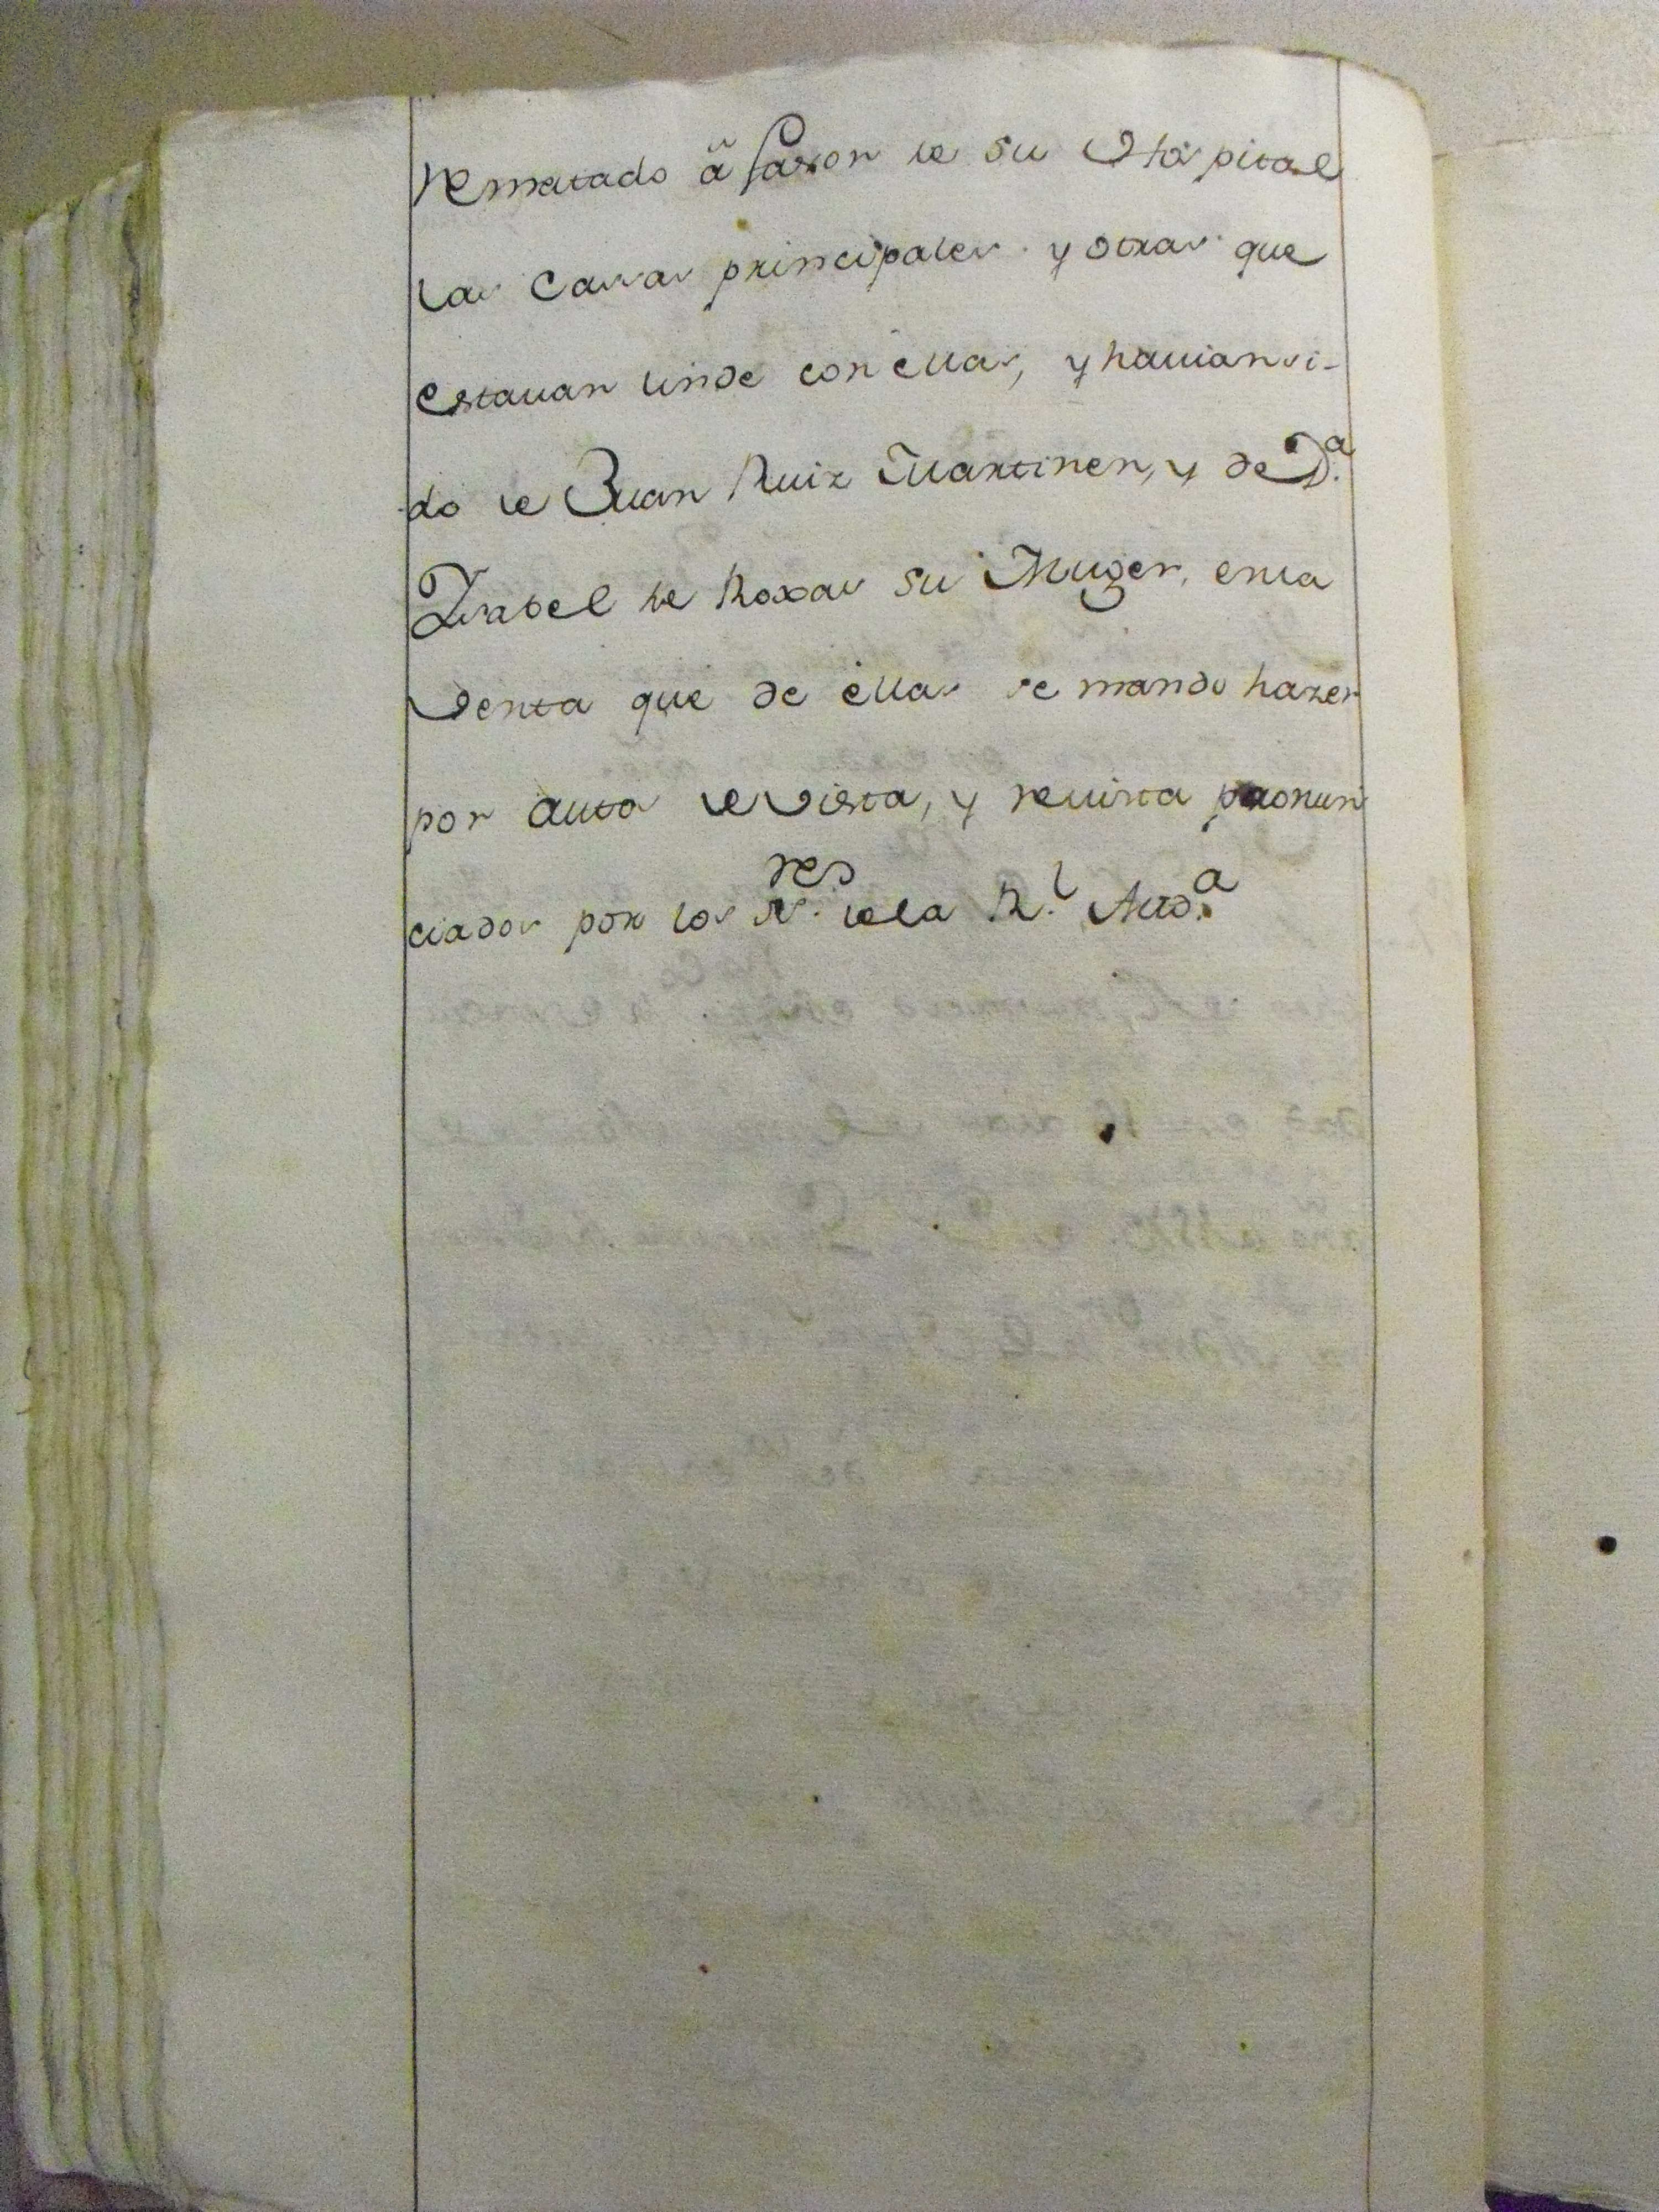 rematado â favor de su Hospital
las Casas principales y otras que
estauan linde con ellas, y hauian si-
do de Juan Ruiz Martinez, y de D.ª
Ysabel de Roxas su Muger, en la
Venta que de ellas se mando hazer
por autos de Vista, y reuista pronun
ciados por los S.res de la R.l Aud.ª